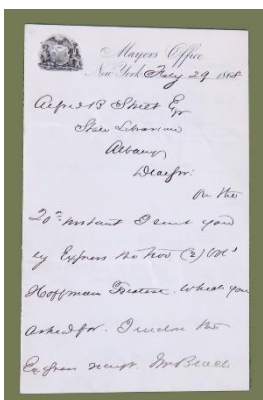 Mayor's Office
New York Feby 29 1868
Alfred B Street Esq
State Librarian
Albany
Dear Sir:
On the
20th instant I sent you
by Express the two (2) Vols
Hoffman which you
asked for. I enclose the
Express receipt. Mr